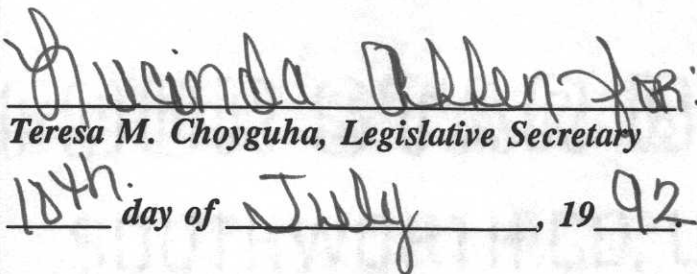 Lucinda Allen for:
Teresa M. Choyguha, Legislative Secretary
10th. day of July, 1992.